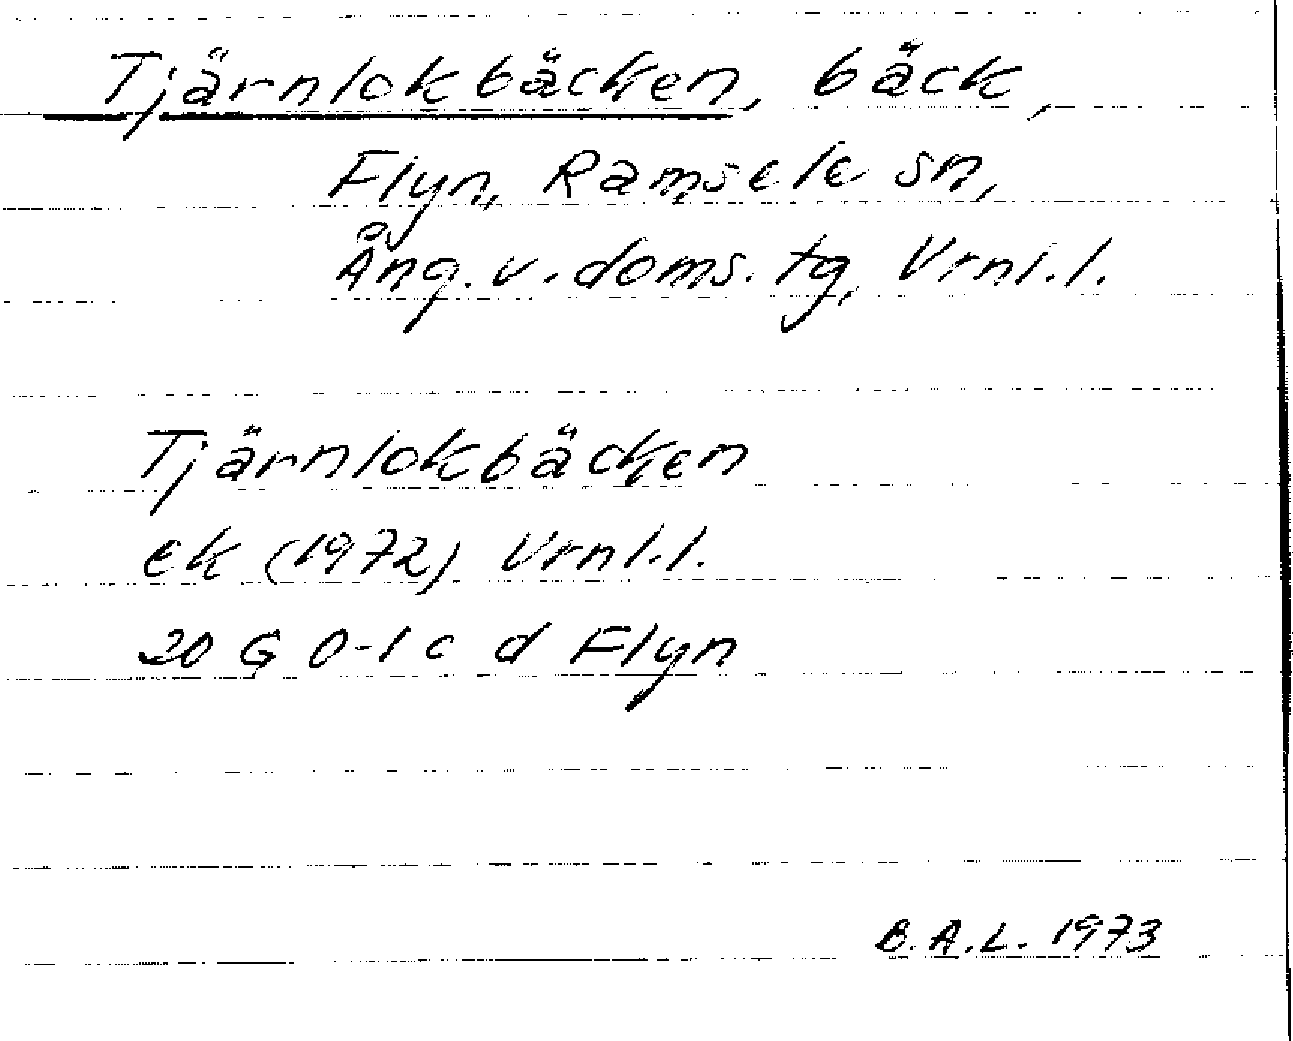 Tjärnlokbäcken, bäck,
Flyn, Ramsele sn,
Ång. v. doms. tg, Vrnl.l.
Tjärnlokbäcken
ek (1972) Vrnl.l.
20 G 0-1 c d Flyn
B.A.L. 1973